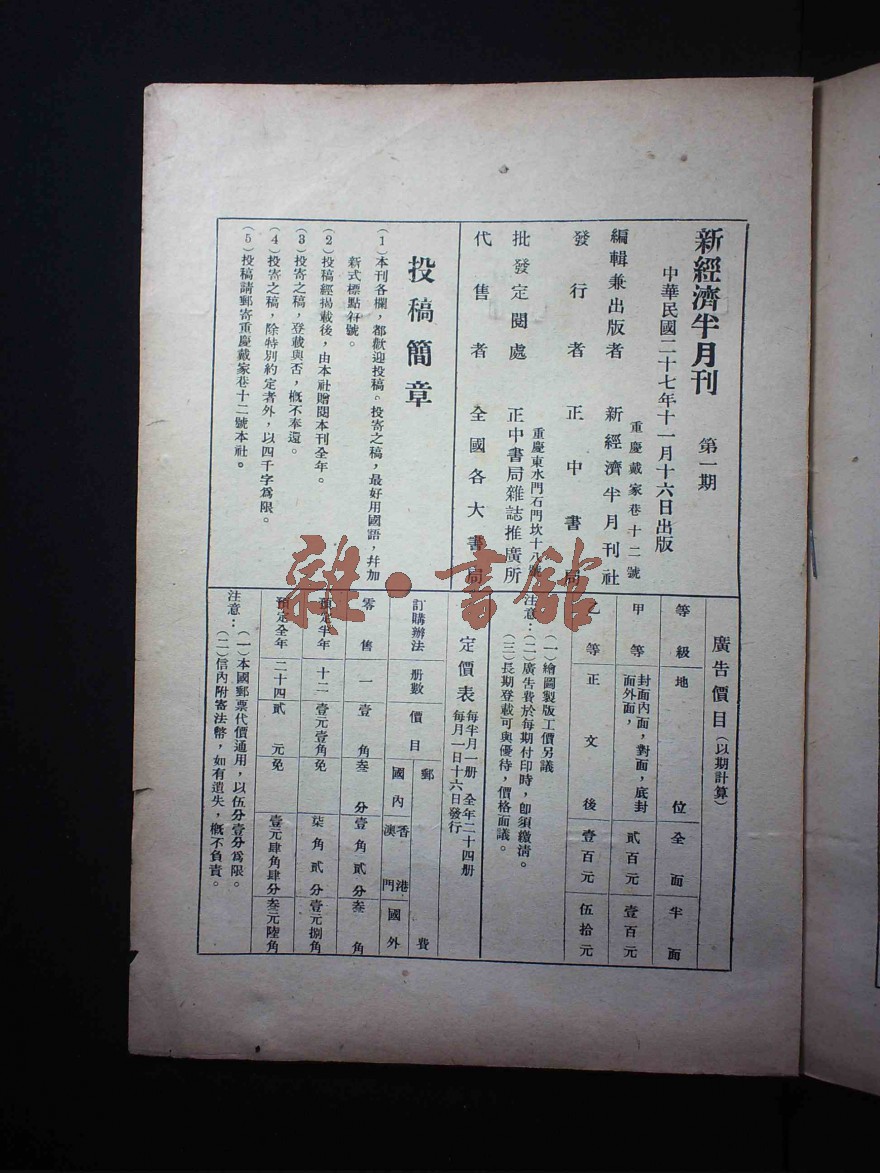 新經濟半月刊　第一期
中華民國二十七年十一月十六日出版
重慶戴家巷十二號
編輯兼出版者　新經濟半月刊社
發行者　正中書局
重慶東水門石門坎十八號
批發定閱處　正中書局雜誌推廣所
代售者　全國各大書局
投稿簡章
(1)本刊各欄，都歡迎投稿。投寄之稿，最好用國語，幷加
新式標點符號。
(2)投稿經揭載後，由本社贈閱本刊全年。
(3)投寄之稿，登載與否，槪不奉還。
(4)投寄之稿，除特別約定者外，以四千字爲限。
(5)投稿請郵寄重慶戴家巷十二號本社。
廣告價目（以期計算）
等級　地位　全面　半面
甲等　封面內面，對面，底封面外面，　貳百元　壹百元
乙等　正文後　壹百元　伍拾元
注意：（一）繪圖製版工價另議
（二）廣告費於每期付印時，卽須繳淸。
（三）長期登載可與優待，價格面議。
定價表　每半月一册　全年二十四册
每月一日十六日發行
訂購辦法　册數　價目　郵費
國內　香港澳門　國外
零售　一　壹角　叁分　壹角貳分　叁角
預定半年　十二　壹元壹角　免　柒角貳分　壹元捌角
預定全年　二十四　貳元　免　壹元肆角肆分　叁元陸角
注意：（一）本國郵票代價通用，以伍分壹分爲限。
（二）信內附寄法幣，如有遺失，槪不負責。
雜·書館